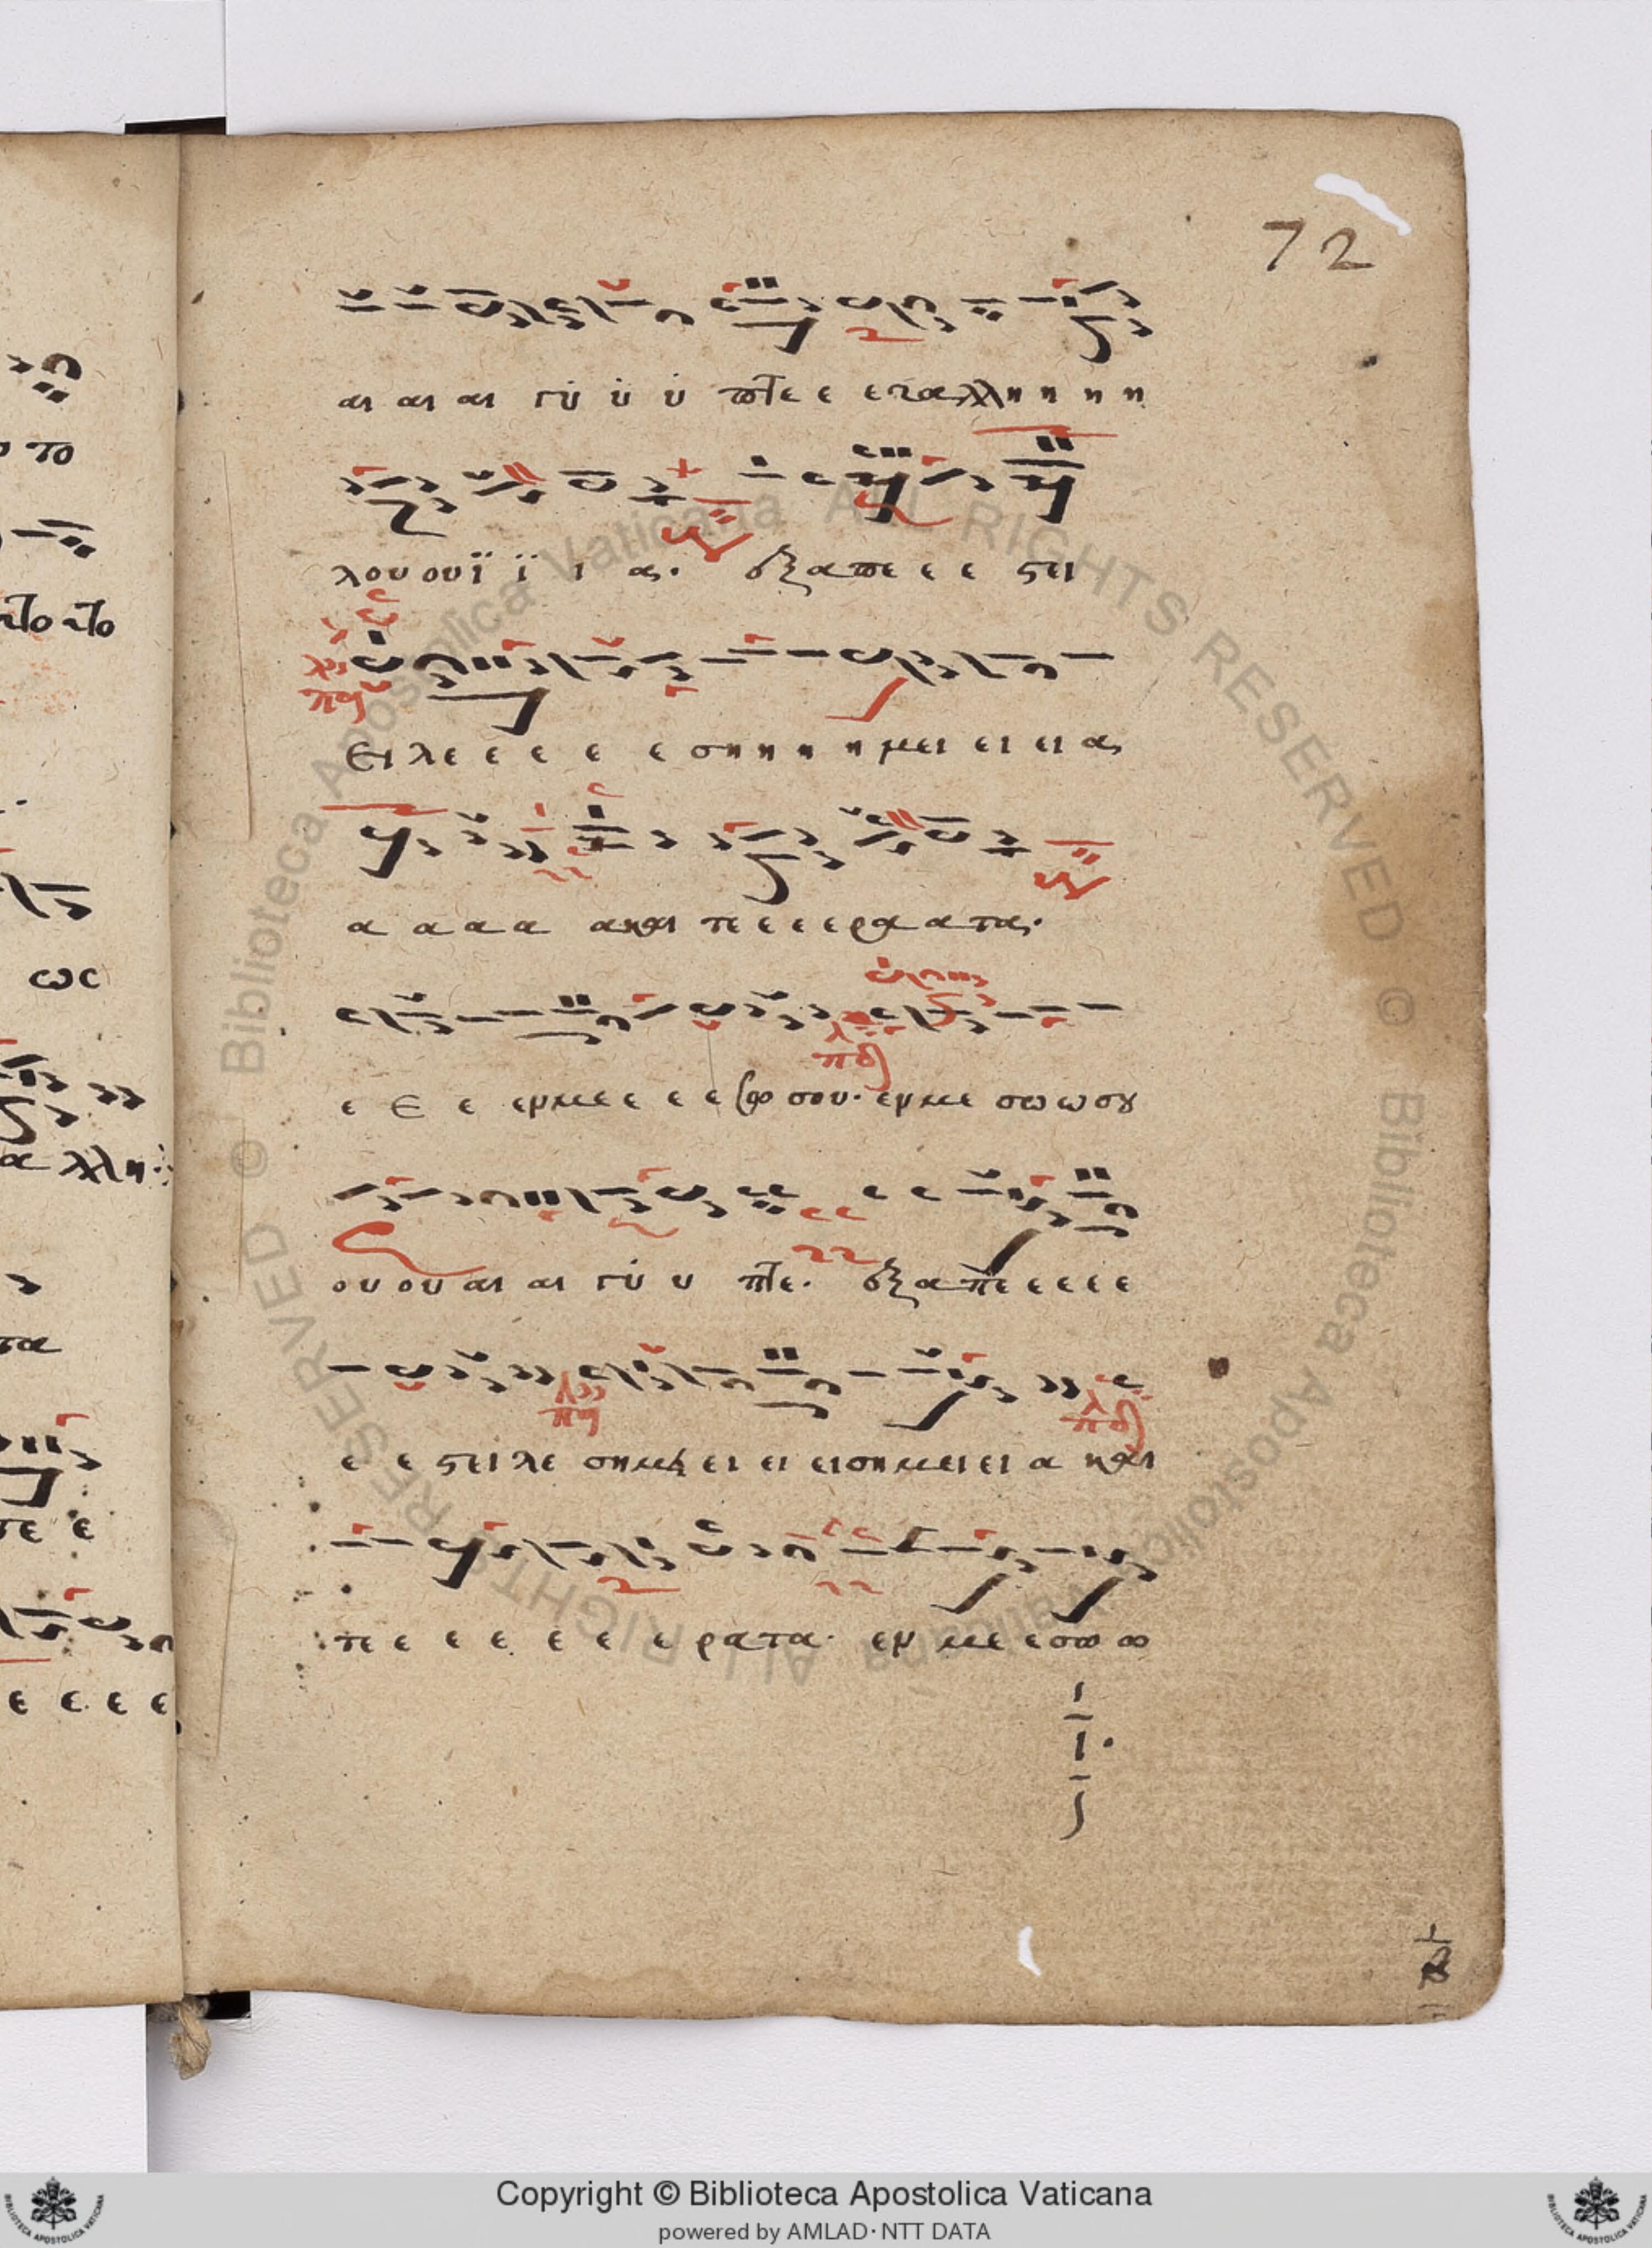 72
αι αι αι γύ ύ ύ πτε ε εταλλη η η η
λου ουϊ ϊ ι α. εξαπε ε ε στει
Ει λε ε ε ε ε ση η η η μει ει ει α
α α α α α και πε ε ε ε ρα α τα.
ε Ε ε εν με ε ε ε ε σου. εν με σω ω σου
ου ου αι αι γύ υ πτε. εξα πε ε ε ε ε
ε ε στει λε ση μει ει ει ει ση μει ει α και
πε ε ε ε ε ε ε ρα τα. εν με ε σω ω
το
το το
ως
α λλη
τα
πε ε
ε ε ε ε
Biblioteca Apostolica Vaticana ALL RIGHTS RESERVED ©
Copyright © Biblioteca Apostolica Vaticana
powered by AMLAD·NTT DATA